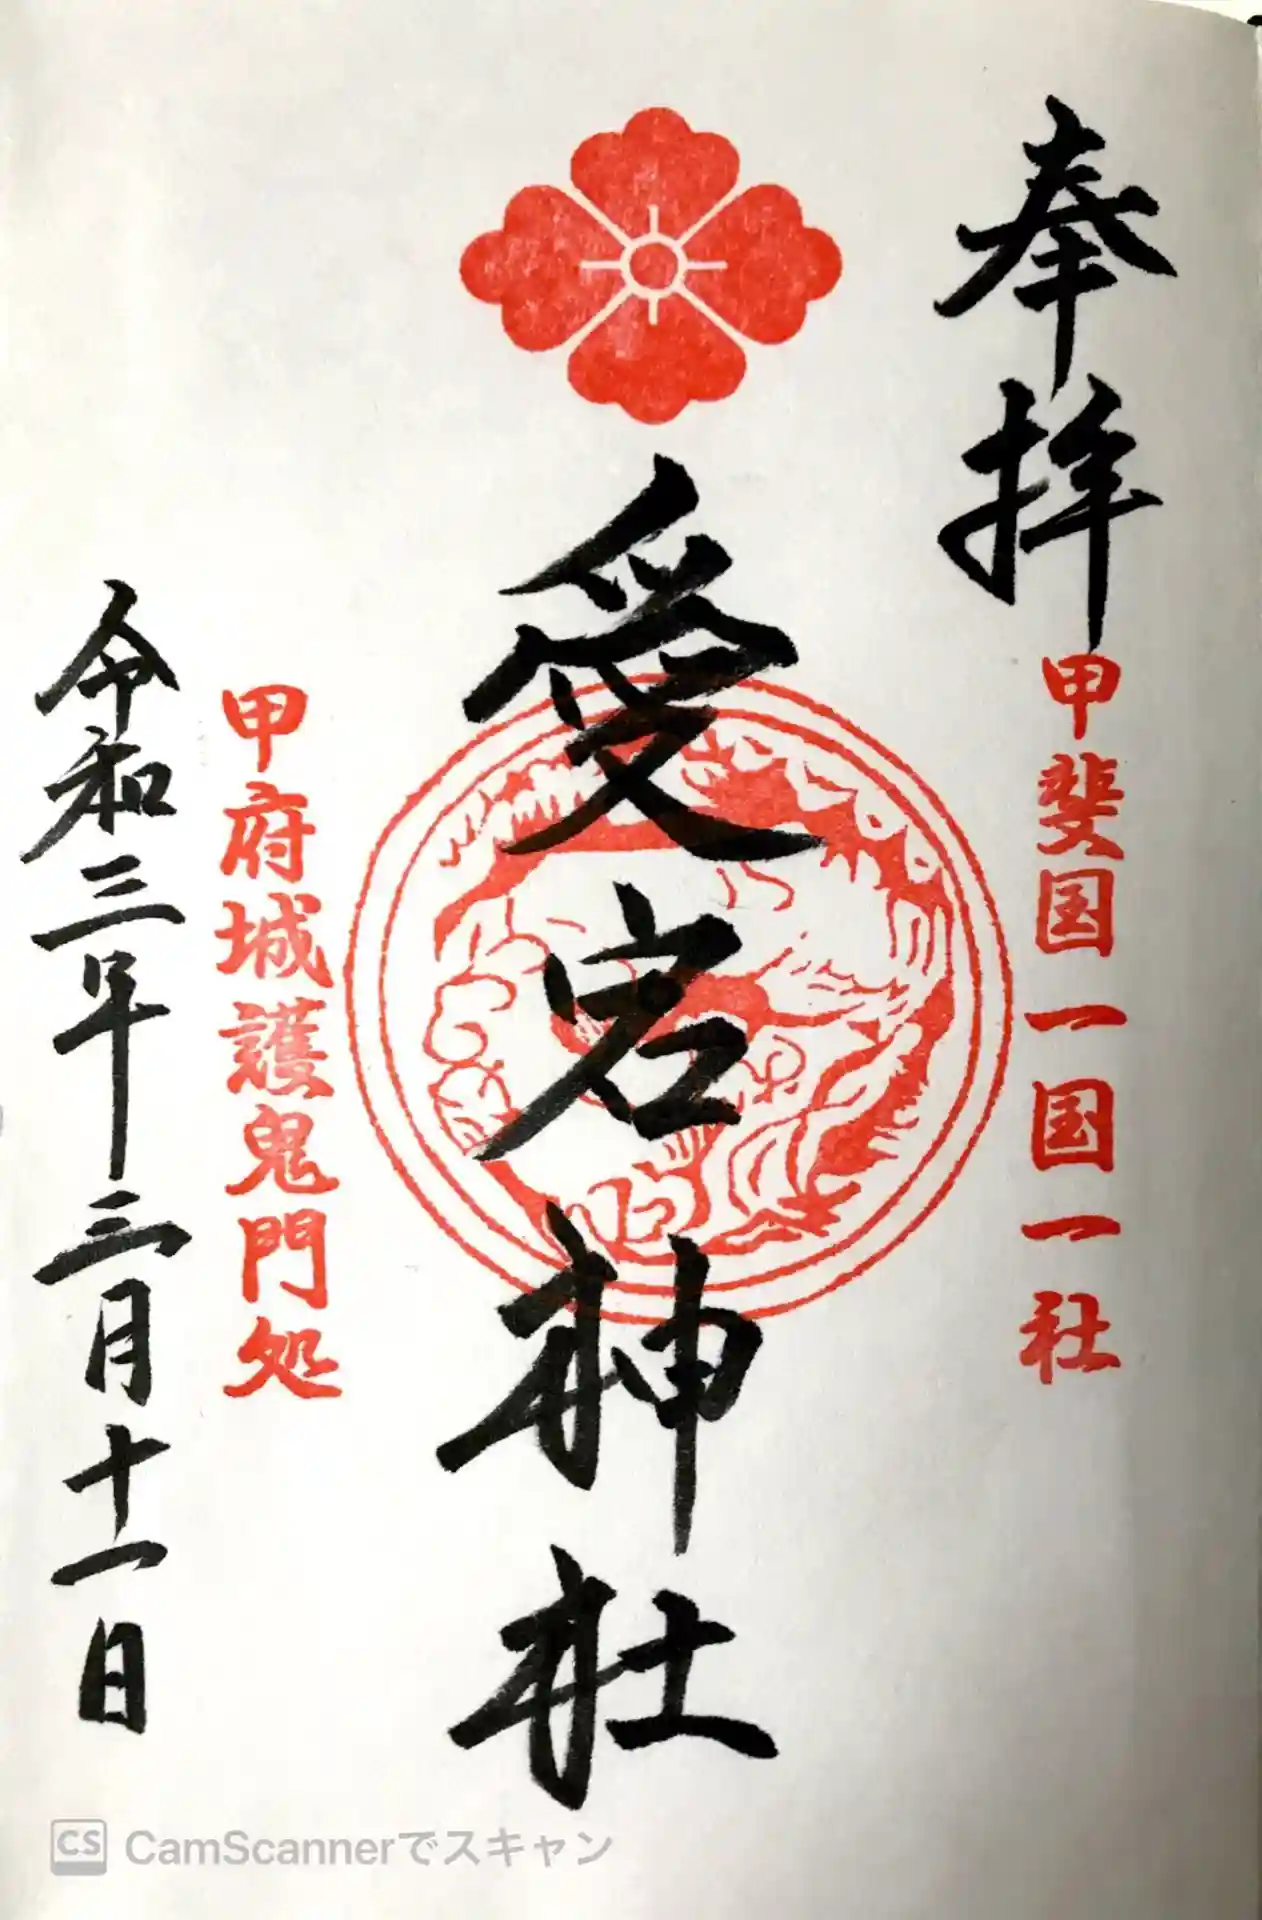 奉拝
甲斐国一国一社
愛宕神社
甲府城護鬼門処
令和三年三月十一日
CS CamScannerでスキャン